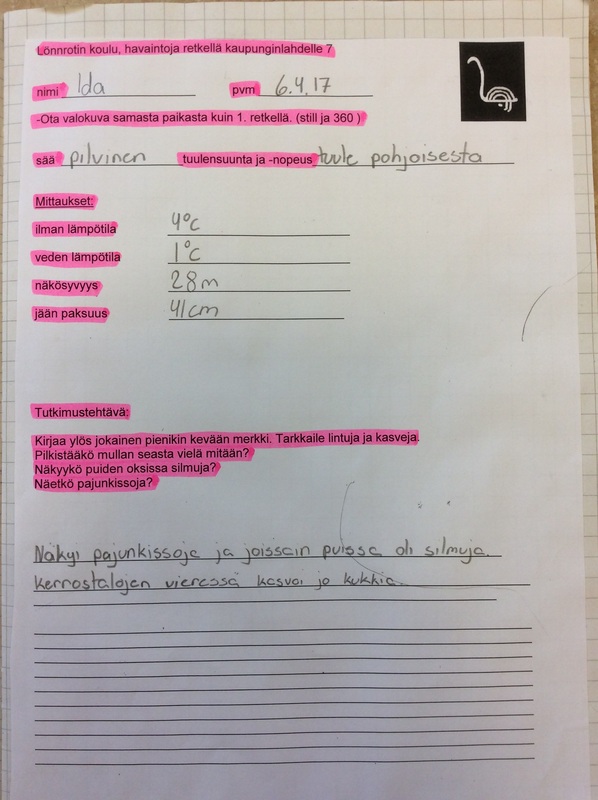 Lönnrotin koulu, havaintoja retkellä kaupunginlahdelle 7
nimi Ida pvm 6.4.17
-Ota valokuva samasta paikasta kuin 1. retkellä. (still ja 360 )
sää pilvinen tuulensuunta ja -nopeus tuule pohjoisesta
Mittaukset:
ilman lämpötila 4°C
veden lämpötila 1°C
näkösyvyys 28m
jään paksuus 41cm
Tutkimustehtävä:
Kirjaa ylös jokainen pienikin kevään merkki. Tarkkaile lintuja ja kasveja.
Pilkistääkö mullan seasta vielä mitään?
Näkyykö puiden oksissa silmuja?
Näetkö pajunkissoja?
Näkyi pajunkissoja ja joissain puissa oli silmuja.
kerrostalojen vieressä kasvoi jo kukkia.